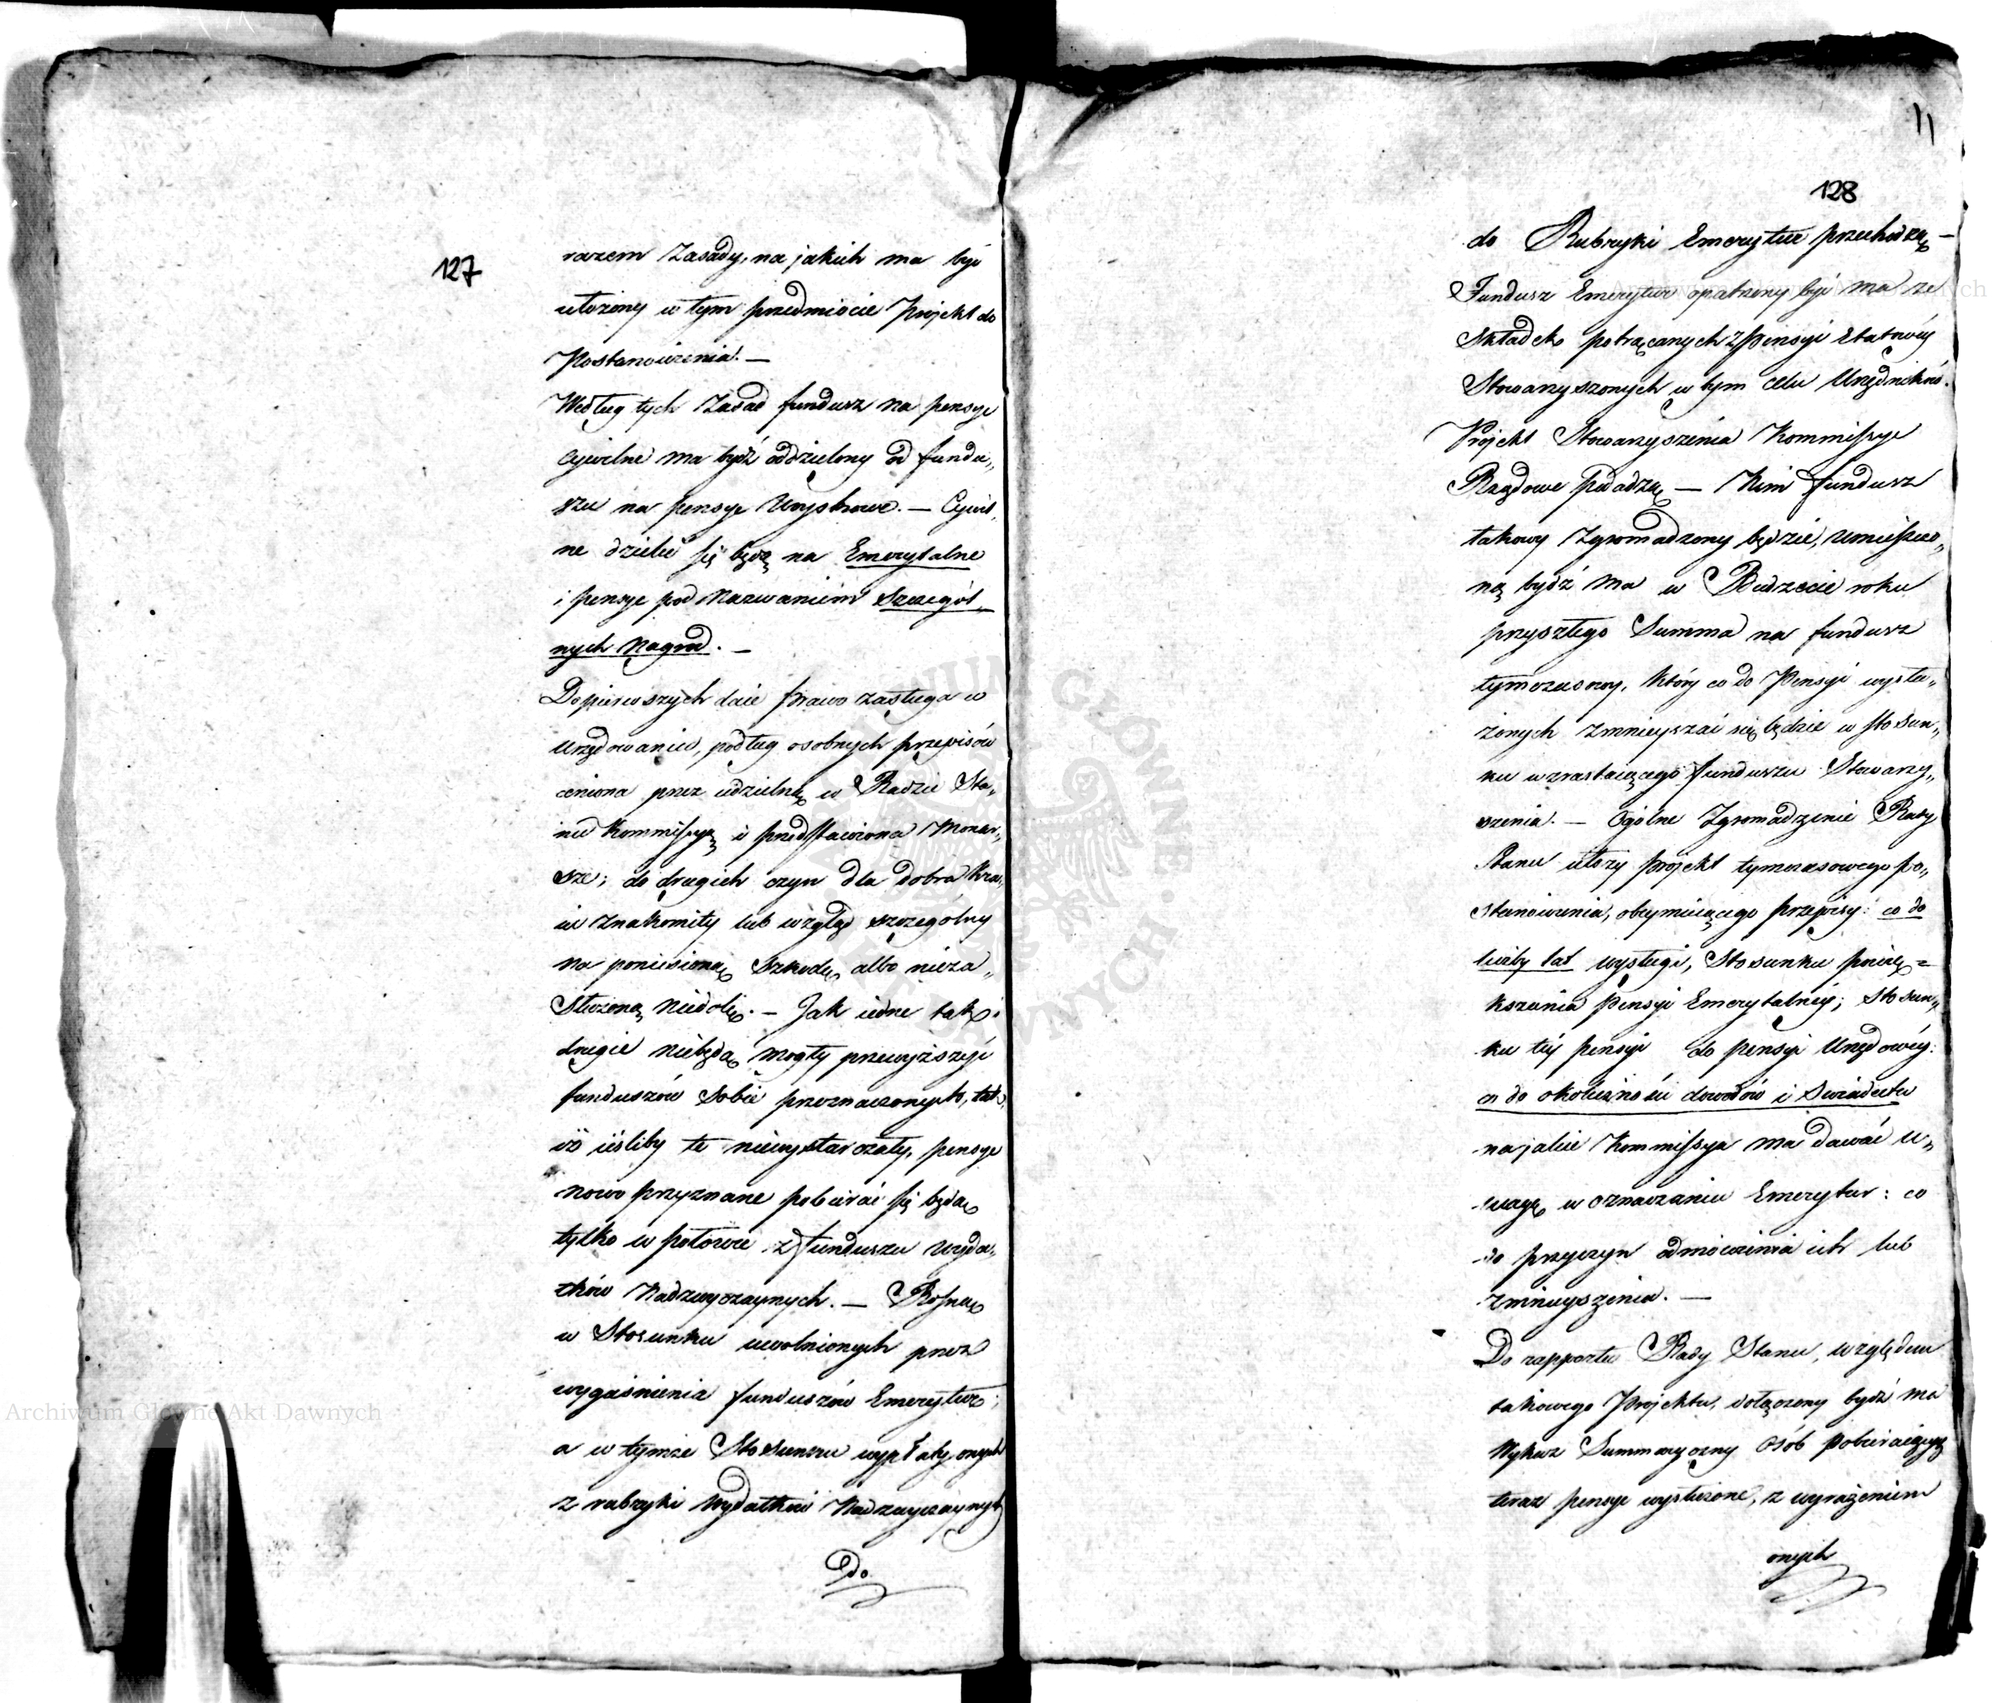 127
razem Zasady, na jakich ma być
ułożony w tym przedmiocie Projekt do
Postanowienia. —
Według tych Zasad fundusz na pensye
Cywilne ma bydź oddzielony od fundu„
szu na pensye Woyskowe. — Cywil„
ne dzielić się będą na Emerytalne
i pensye pod Nazwaniem Szczegól„
nych Nagród. —
Do pierwszych daie prawo zasługa w
Urzędowaniu, podług osobnych przepisów
ceniona przez udzielną w Radzie Sta„
nu Kommissyą i przedstawiona Monar„
sze; do drugich czyn dla dobra Kra„
iu znakomity lub wzgląd szczególny
na poniesioną Szkodę, albo nieza„
służoną Niedolę. — Jak iedne tak i
drugie niebędą mogły przewyższyć
funduszów Sobie przeznaczonych, tak,
iż ieśliby te niewystarczały, pensye
nowo przyznane pobierać się będą
tylko w połowie z funduszu Wyda„
tków Nadzwyczaynych. — Rosną
w Stosunku uwolnionych przez
wygaśnienia funduszów Emerytur;
a w tymże Stosunku wypłaty onych
z rubryki Wydatków Nadzwyczaynych
Do
11
128
do Rubryki Emerytur przechodzą —
Fundusz Emerytur opatrzony być ma ze
Składek potrącanych z Pensyi Etatowéy
Stowarzyszonych w tym celu Urzędników.
Projekt Stowarzyszenia Kommissye
Rządowe podadzą — Nim fundusz
takowy Zgromadzony będzie, umieszczo„
ną bydź ma w Budżecie roku
przyszłego Summa na fundusz
tymczasowy, który co do Pensyi wysłu„
żonych zmnieyszać się będzie w stosun„
ku wzrastaiącego funduszu Stowarzy„
szenia. — Ogólne Zgromadzenie Rady
Stanu ułoży projekt tymczasowego po„
stanowienia, obeymuiącego przepisy: co do
liczby lat wysługi, Stosunku powię=
kszania Pensyi Emerytalnéy; Stosun„
ku téy pensyi do pensyi Urzędowéy:
co do okoliczności dowodów i Swiadectw
na jakie Kommissya ma dawać u„
wagę w oznaczaniu Emerytur: co
do przyczyn odmówienia ich lub
zmnieyszenia. —
Do rapportu Rady Stanu, względem
takowego Projektu, dołączony bydź ma
Wykaz Summaryczny osób pobieraiących
teraz pensye wysłużone, z wyrażeniem
onych
Archiwum Główne Akt Dawnych